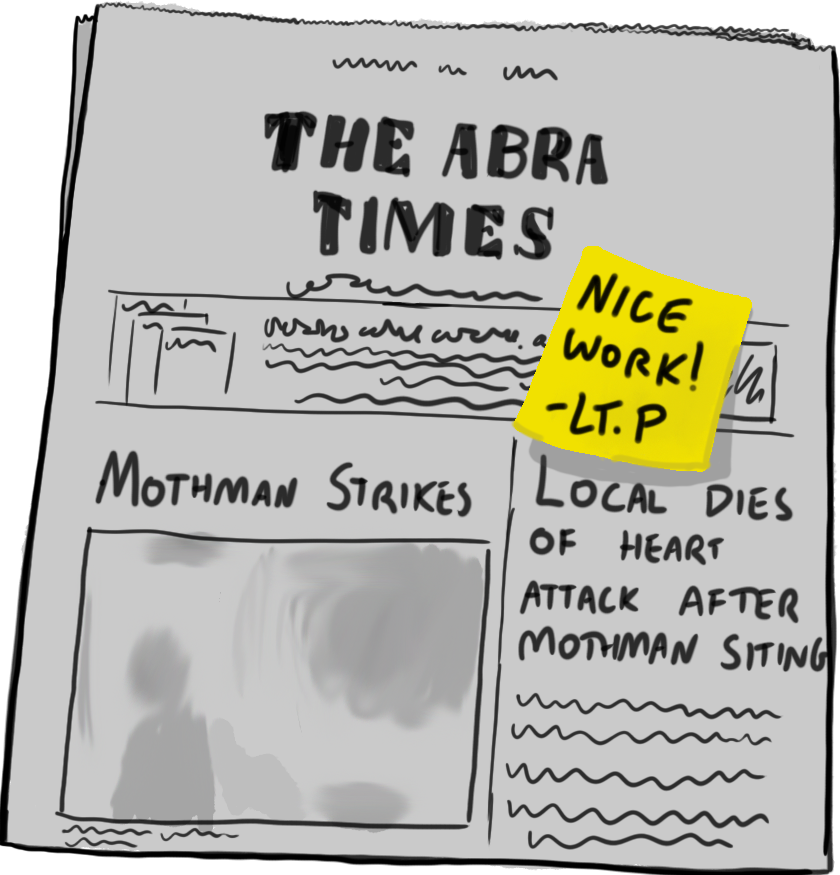 THE ABRA
TIMES
NICE
WORK!
-LT. P
MOTHMAN STRIKES
LOCAL DIES
OF HEART
ATTACK AFTER
MOTHMAN SITING